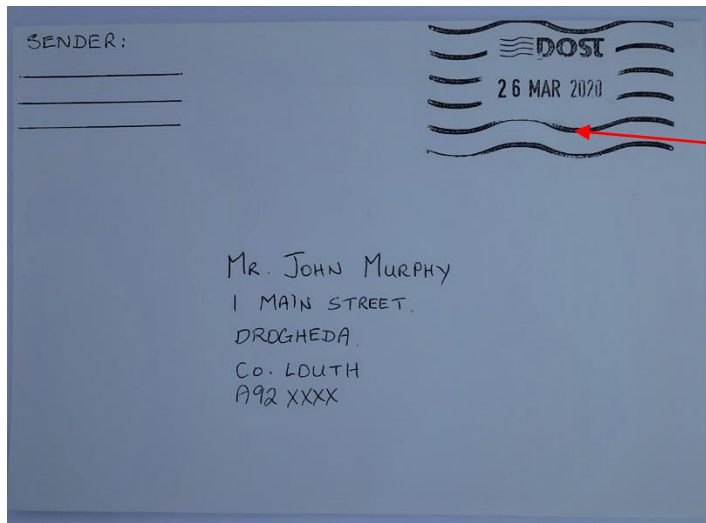 SENDER:
POST
26 MAR 2020
MR. JOHN MURPHY
1 MAIN STREET.
DROGHEDA.
CO. LOUTH
A92 XXXX